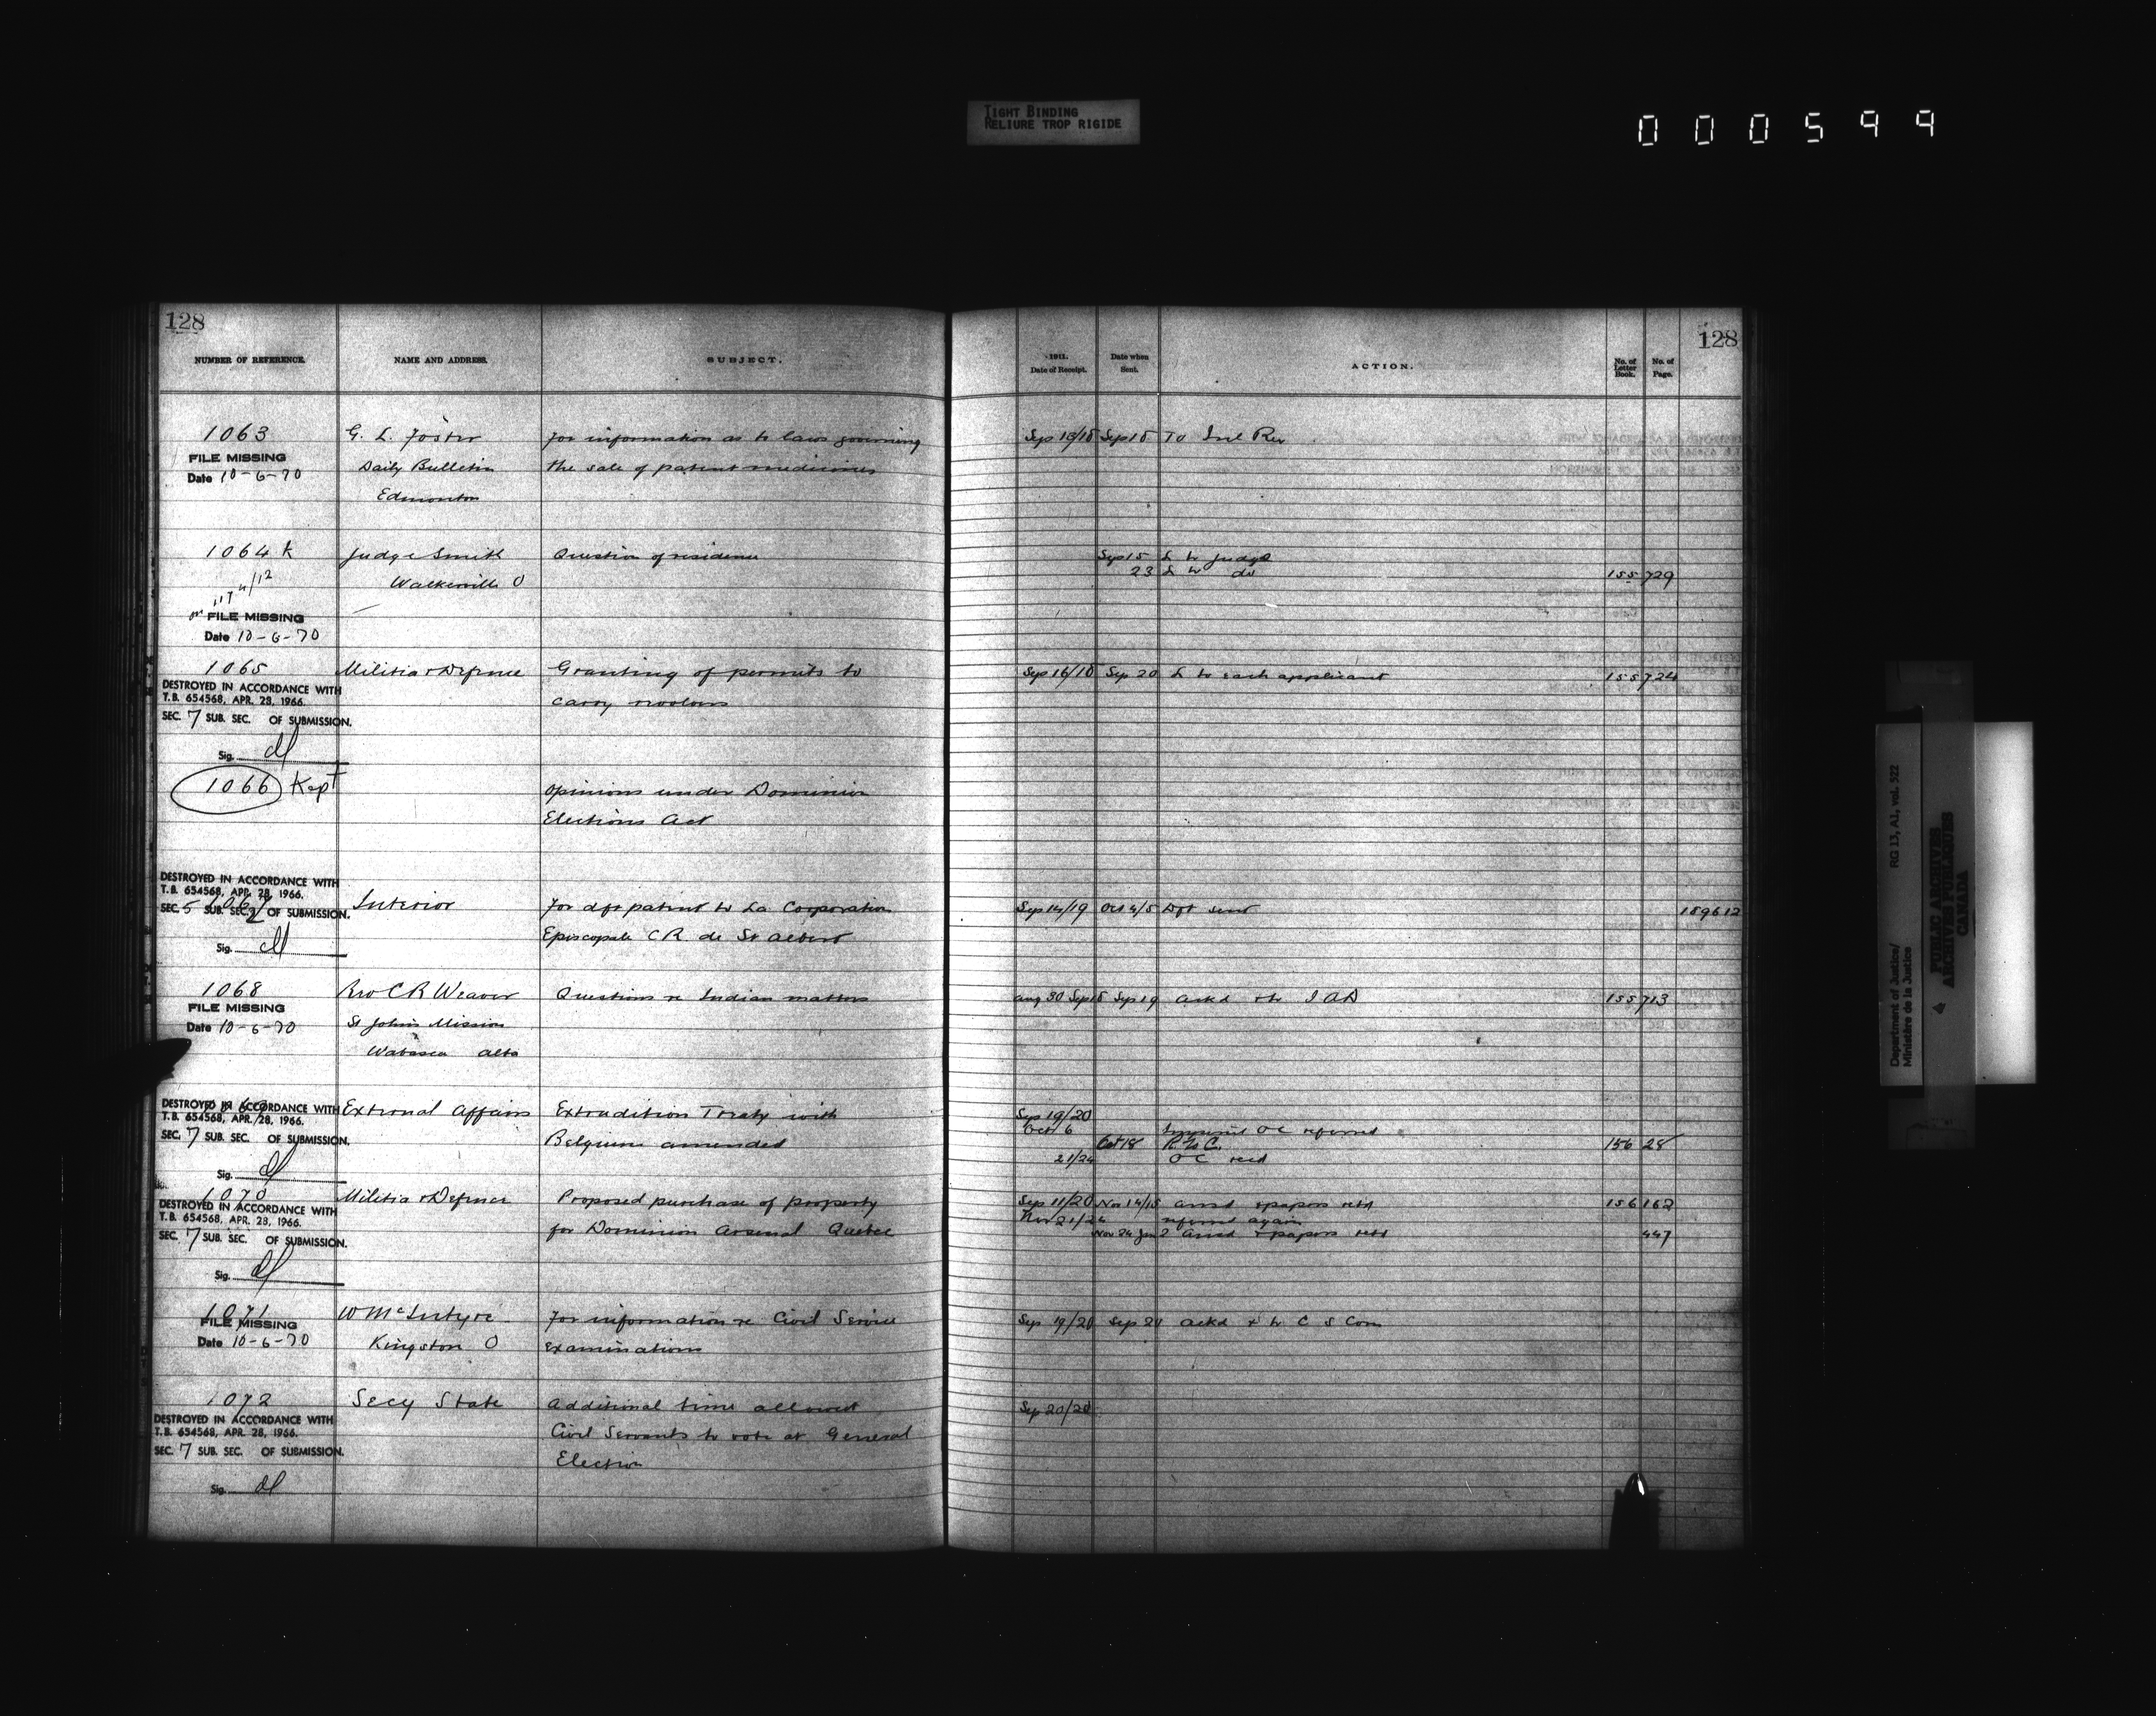 TIGHT BINDING
RELIURE TROP RIGIDE
000599
128
NUMBER OF REFERENCE.
NAME AND ADDRESS.
SUBJECT.
1063
FILE MISSING
Date 10-6-70
G. L. Foster
Daily Bulletin
Edmonton
For information as to laws governing
the sale of patent medicines
1064 K
FILE MISSING
Date 10-6-70
Judge Smith
Walkerville O
Question of residence
1065
DESTROYED IN ACCORDANCE WITH
T.B. 654568, APR. 28, 1966.
SEC. 7 SUB. SEC. OF SUBMISSION.
Sig.
Militia & Defence
Granting of permits to
carry revolvers
1066 Kept
Opinions under Dominion
Elections Act
DESTROYED IN ACCORDANCE WITH
T.B. 654568, APR. 28, 1966.
1067
SEC. 5 SUB. SEC. 2 OF SUBMISSION.
Sig.
Interior
For dft patent to La Corporation
Episcopale C R de St Albert
1068
FILE MISSING
Date 10-6-70
Rev C R Weaver
St Johns Mission
Wabasca Alta
Question re Indian matters
1069
DESTROYED IN ACCORDANCE WITH
T.B. 654568, APR. 28, 1966.
SEC. 7 SUB. SEC. OF SUBMISSION.
Sig.
External Affairs
Extradition Treaty with
Belgium amended
1070
DESTROYED IN ACCORDANCE WITH
T.B. 654568, APR. 28, 1966.
SEC. 7 SUB. SEC. OF SUBMISSION.
Sig.
Militia & Defence
Proposed purchase of property
for Dominion Arsenal Quebec
1071
FILE MISSING
Date 10-6-70
W McIntyre
Kingston O
For information re Civil Service
examinations
1072
DESTROYED IN ACCORDANCE WITH
T.B. 654568, APR. 28, 1966.
SEC. 7 SUB. SEC. OF SUBMISSION.
Sig.
Secy State
Additional time allowed
Civil Servants to vote at General
Election
128
1911.
Date of Receipt.
Date when
Sent.
ACTION.
No. of
Letter
Book.
No. of
Page.
Sep 13/18 Sep 18 To Inl Rev
Sep 15 L to Judge
23 L to do 155 729
Sep 16/18 Sep 20 L to each applicant 155 724
Sep 14/19 Oct 4/5 Dft sent 189612
Aug 30 Sep 18 Sep 19 Ackd & to I A D 155 713
Sep 19/20
Oct 6 OC referred
Oct 18 156 28
21/24 OC recd
Sep 11/20 Nov 14/15 Ansd & papers retd 156 162
Nov 21/22 referred again
Nov 24 Jan 2 Ansd & papers retd 447
Sep 19/20 Sep 21 Ackd & to C S Com
Sep 20/20
Department of Justice/
Ministère de la Justice
RG 13, A1, vol. 522
PUBLIC ARCHIVES
ARCHIVES PUBLIQUES
CANADA